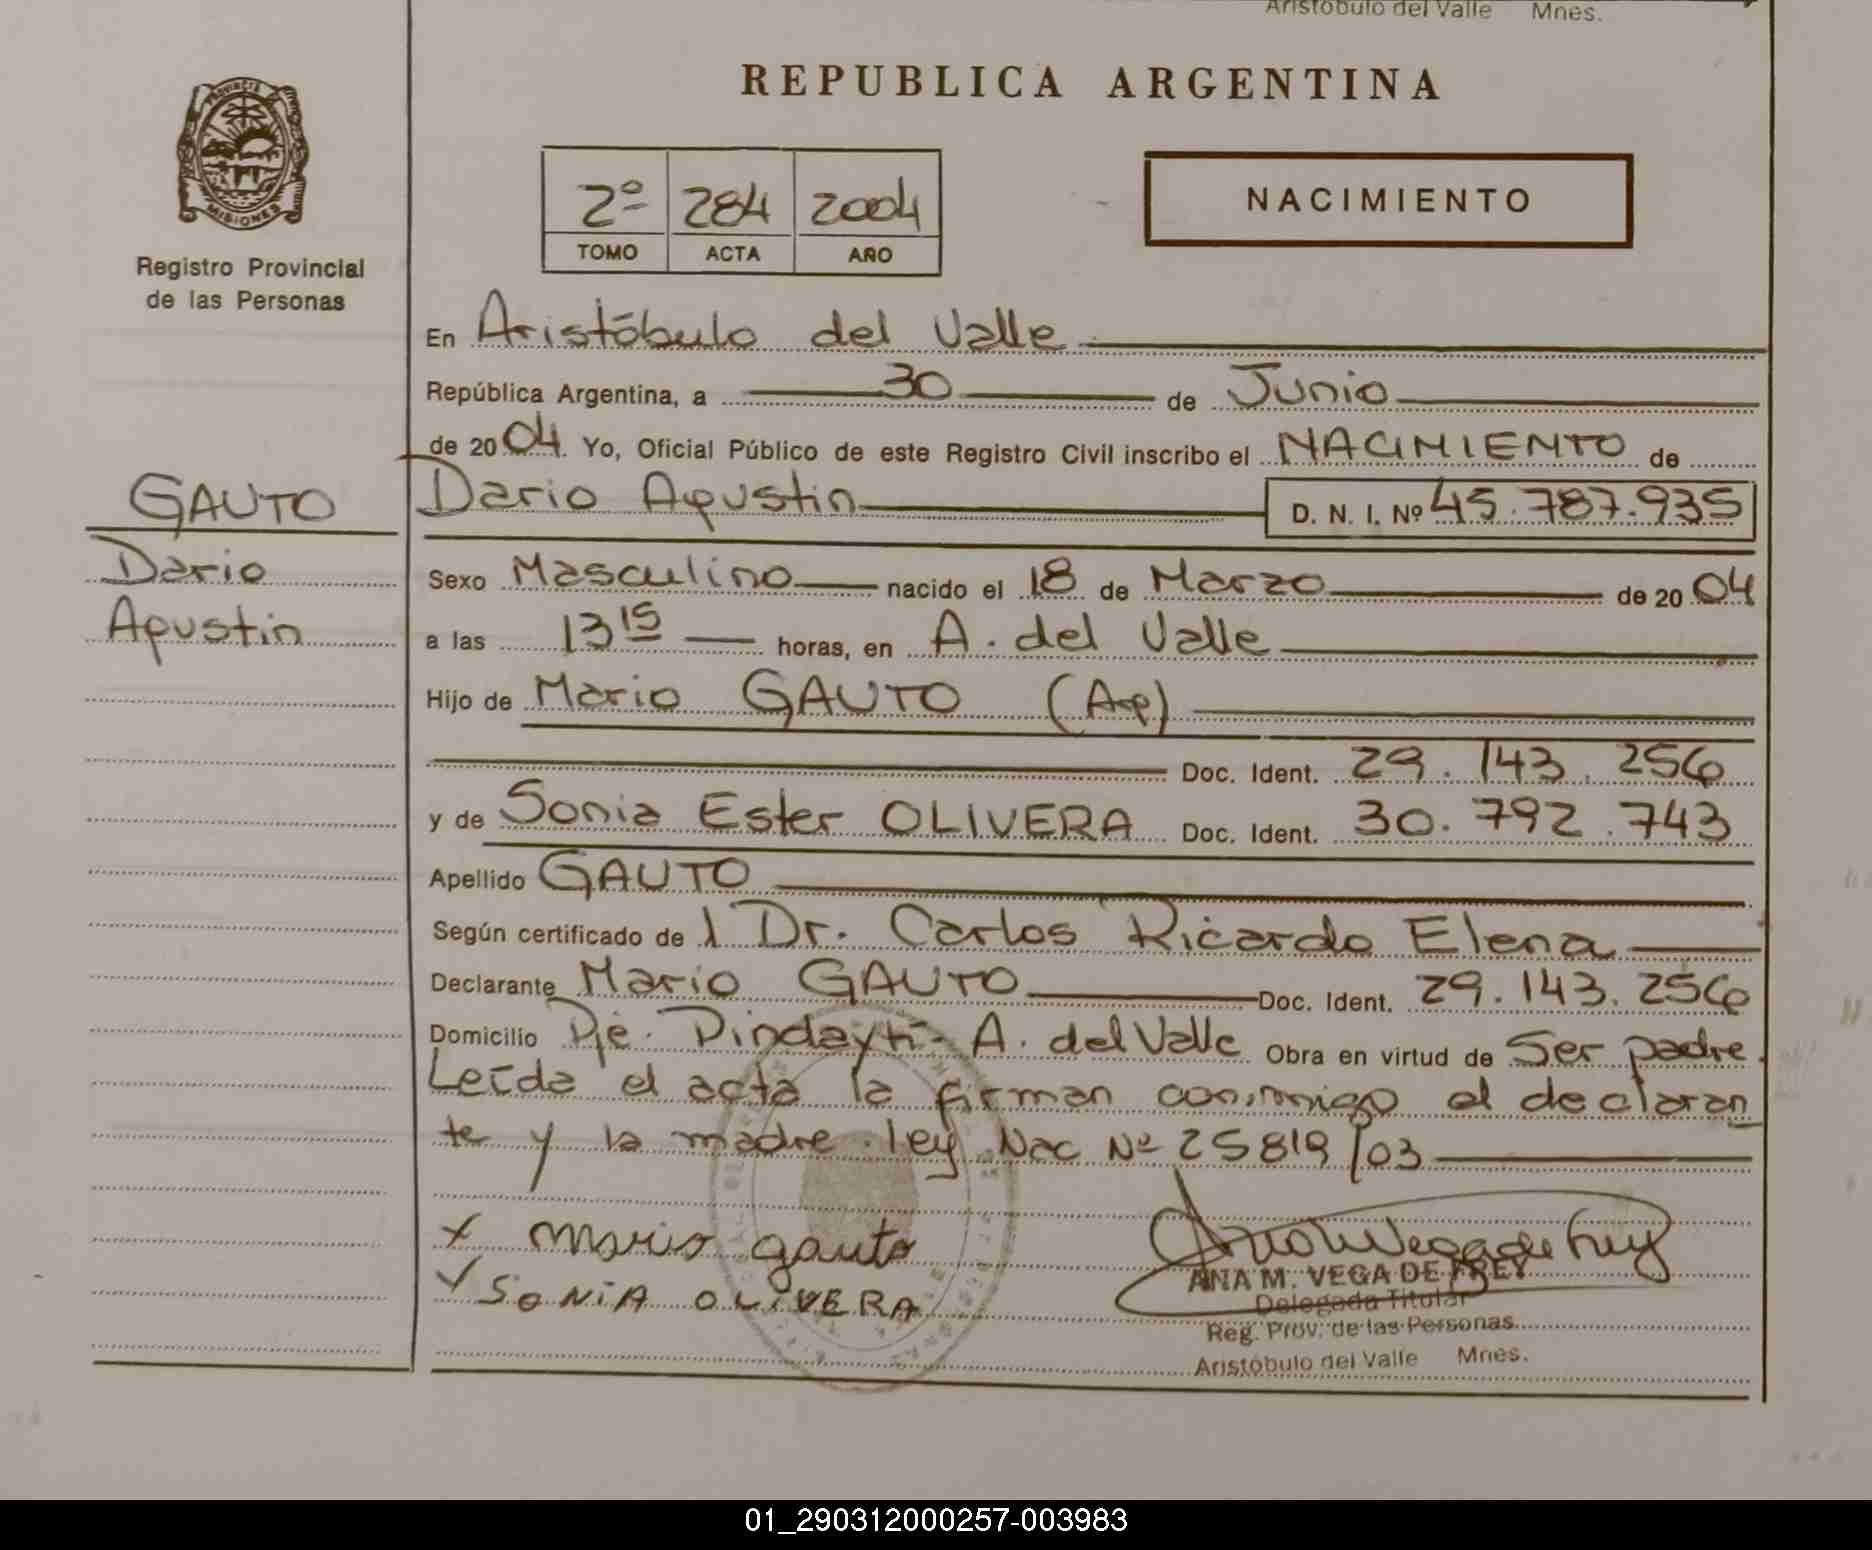 Aristóbulo del Valle Mnes.
REPUBLICA ARGENTINA
PROVINCIA
MISIONES
2º 284 2004
TOMO ACTA AÑO
NACIMIENTO
Registro Provincial
de las Personas
En Aristóbulo del Valle
República Argentina, a 30 de Junio
de 2004. Yo, Oficial Público de este Registro Civil inscribo el NACIMIENTO de
GAUTO
Dario Agustin D. N. I. Nº 45.787.935
Dario
Agustin
Sexo Masculino nacido el 18 de Marzo de 2004
a las 13 15 horas, en A. del Valle
Hijo de Mario GAUTO (Ap)
Doc. Ident. 29.143.256
y de Sonia Ester OLIVERA Doc. Ident. 30.792.743
Apellido GAUTO
Según certificado de l Dr. Carlos Ricardo Elena
Declarante Mario GAUTO Doc. Ident. 29.143.256
Domicilio Pje. Pindaytí - A. del Valle Obra en virtud de Ser padre.
Leída el acta la firman conmigo el declaran
te y la madre. ley Nac Nº 25819/03
x mario gauto
SONIA OLIVERA
ANA M. VEGA DE FREY
Delegada Titular
Reg. Prov. de las Personas
Aristóbulo del Valle Mnes.
01_290312000257-003983